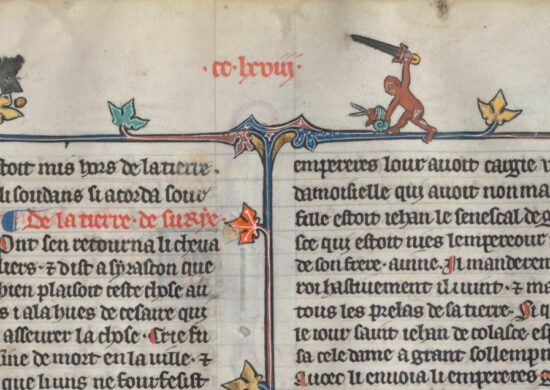 ·cc·lxviij·
stoit mis hors de la tierre·
li soudans si acorda
De la tierre de surie·
ont sen retourna li cheua
liers· ⁊ dist a syraston que
bien plaisoit ceste chose au
s i ala hues de cesaire qui
asseurer la chose· Crie fu
de mort en la uille· ⁊
que li uns ne fourfesist
empereres lour auoit cargie
damoisielle qui auoit non ma
fille estoit iehan le senescal de g
sce qui estoit nies lempereour
de son frere· ainne· Il manderent
roi hastiuement il uint· ⁊ ma
tous les prelas de sa tierre· Si q
le iour saint iehan de colasce esp
sa cele dame a grant sollempn
Auoec li enuoia li empereres